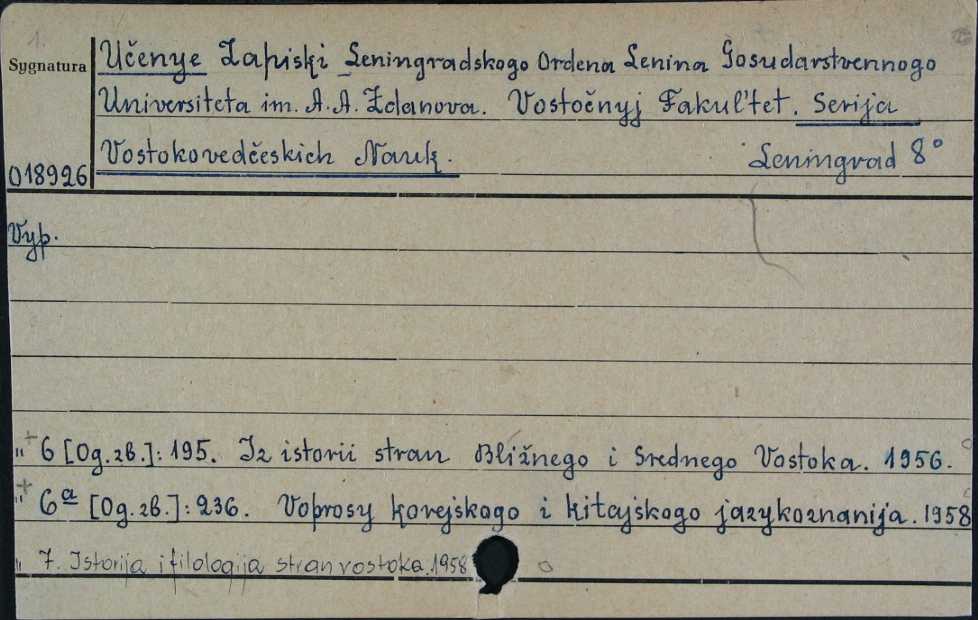 1.
Sygnatura
Učenye Zapiski Leningradskogo Ordena Lenina Gosudarstvennogo
Universiteta im. A. A. Ždanova. Vostočnyj Fakul'tet. Serija
Vostokovedčeskich Nauk. Leningrad 8°
018926
Vyp.
" + 6 [Og. zb.]: 195. Iz istorii stran Bližnego i Srednego Vostoka. 1956.
" + 6a [Og. zb.]: 236. Voprosy korejskogo i kitajskogo jazykoznanija. 1958
" 7. Istorija i filologija stran vostoka. 1958